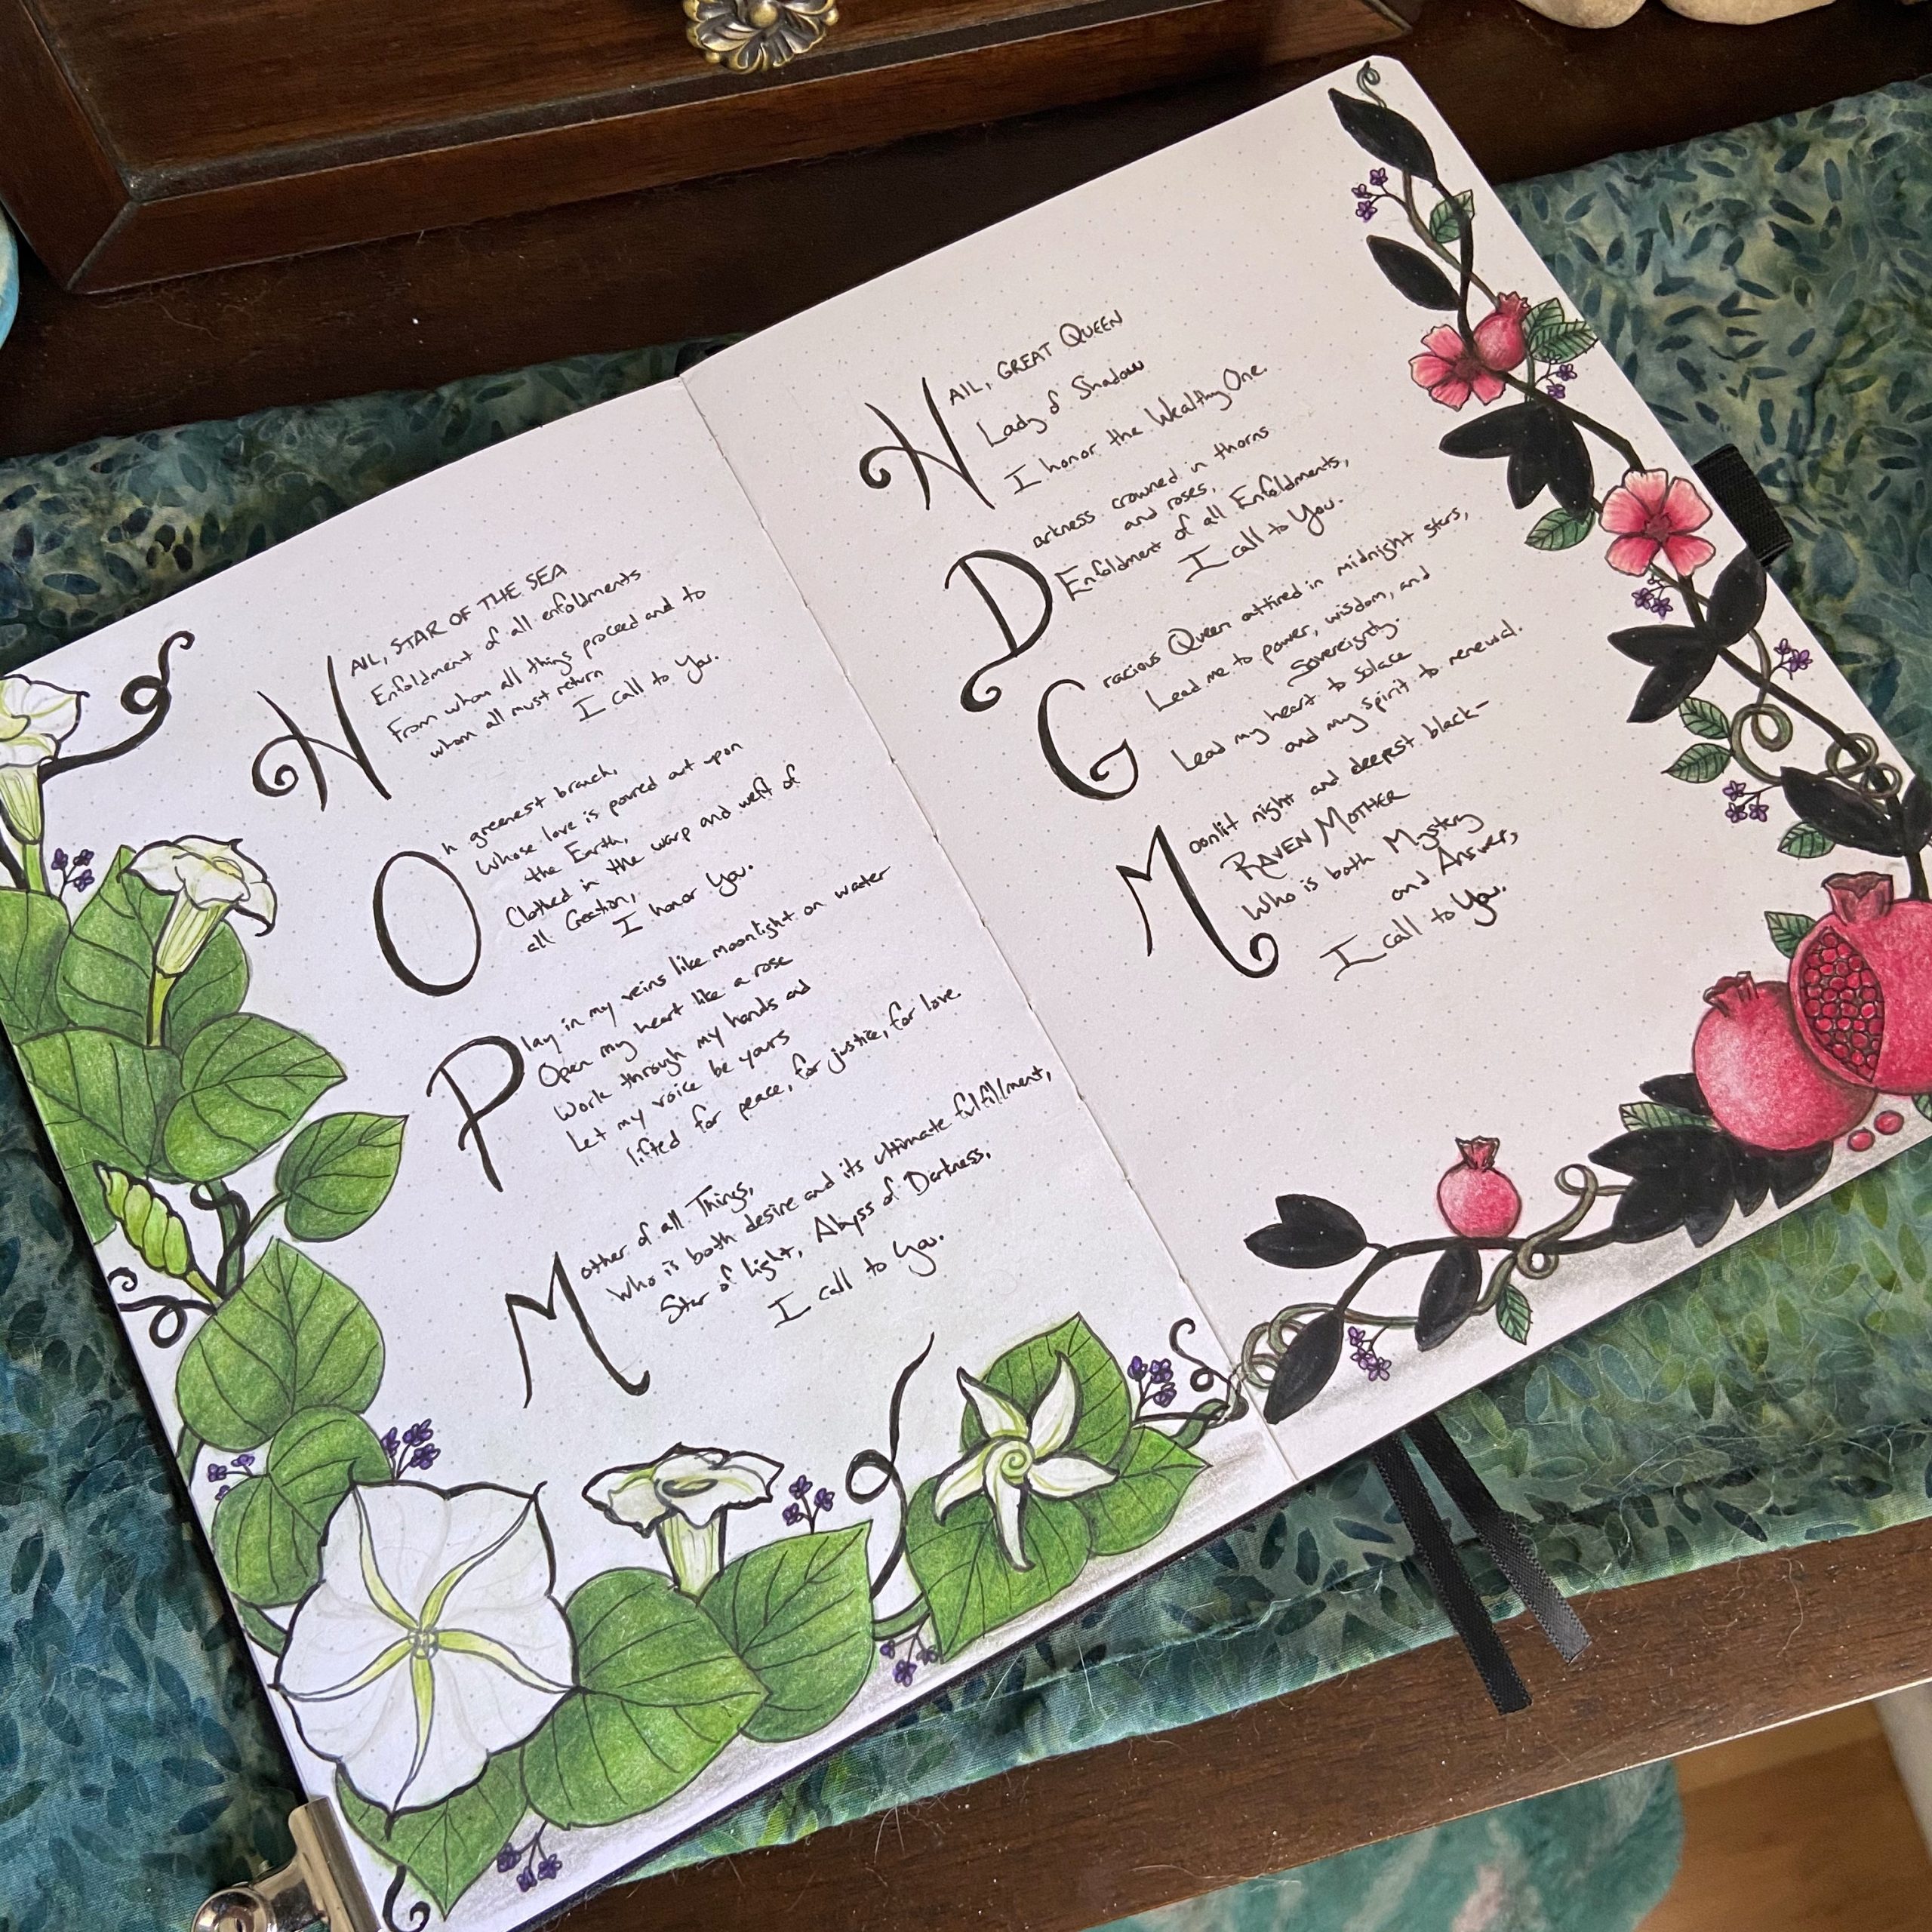 HAIL, STAR OF THE SEA
Enfoldment of all enfoldments
From whom all things proceed and to
whom all must return
I call to You.
Oh greenest branch,
Whose love is poured out upon
the Earth,
Clothed in the warp and weft of
all Creation,
I honor You.
Play in my veins like moonlight on water
Open my heart like a rose
Work through my hands and
Let my voice be yours
lifted for peace, for justice, for love.
Mother of all Things,
Who is both desire and its ultimate fulfillment,
Star of Light, Abyss of Darkness,
I call to You.
HAIL, GREAT QUEEN
Lady of Shadow
I honor the Wealthy One.
Darkness crowned in thorns
and roses,
Enfoldment of all Enfoldments,
I call to You.
Gracious Queen attired in midnight stars,
Lead me to power, wisdom, and
Sovereignty.
Lead my heart to solace
and my spirit to renewal.
Moonlit night and deepest black-
RAVEN MOTHER
Who is both Mystery
and Answer,
I call to You.